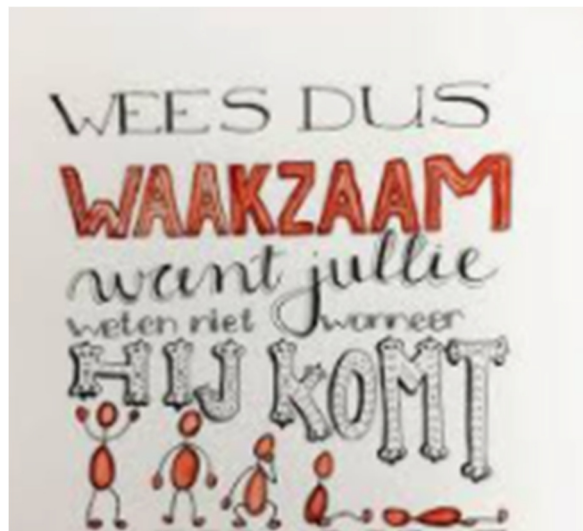 WEES DUS
WAAKZAAM
want jullie
weten niet wanneer
HIJ KOMT